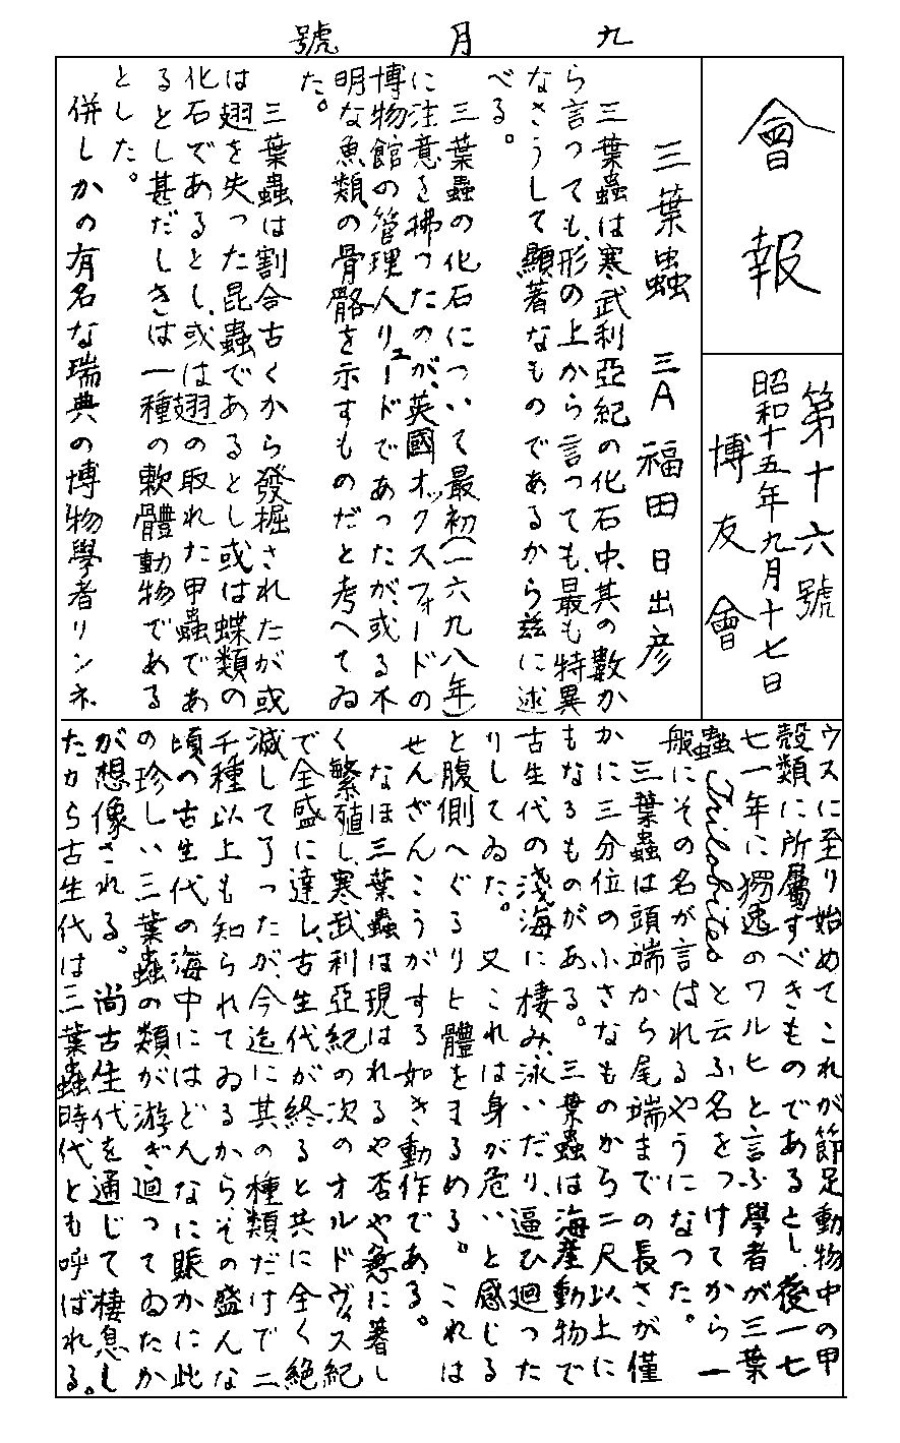 九月號
會報
第十六號
昭和十五年九月十七日
博友會
三葉蟲 三A 福田日出彦
三葉蟲は寒武利亞紀の化石中、其の數か
ら言つても、形の上から言つても、最も特異
なさうして顯著なものであるから茲に述
べる。
三葉蟲の化石について最初(一六九八年)
に注意を拂つたのが、英國オックスフォードの
博物館の管理人リュードであつたが、或る不
明な魚類の骨骼を示すものだと考へてゐ
た。
三葉蟲は割合古くから發掘されたが或
は翅を失つた昆蟲であるとし或は蝶類の
化石であるとし、或は翅の取れた甲蟲であ
るとし甚だしきは一種の軟體動物である
とした。
併しかの有名な瑞典の博物學者リンネ
ウスに至り始めてこれが節足動物中の甲
殼類に所屬すべきものであるとし、後一七
七一年に獨逸のワルヒと言ふ學者が三葉
蟲 Trilobites と云ふ名をつけてから一
般にその名が言はれるやうになつた。
三葉蟲は頭端から尾端までの長さが僅
かに三分位の小さなものから二尺以上に
もなるものがある。 三葉蟲は海產動物で
古生代の淺海に棲み、泳いだり、逼ひ廻つた
りしてゐた。 又これは身が危いと感じる
と腹側へぐるりと體をまるめる。これは
せんざんこうがする如き動作である。
なほ三葉蟲は現はれるや否や急に著し
く繁殖し、寒武利亞紀の次のオルドヴィス紀
で全盛に達し、古生代が終ると共に全く絕
滅して了つたが、今迄に其の種類だけで二
千種以上も知られてゐるから、その盛んな
頃の古生代の海中にはどんなに賑かに此
の珍しい三葉蟲の類が游ぎ廻つてゐたか
が想像される。 尚古生代を通じて棲息し
たから古生代は三葉蟲時代とも呼ばれる。